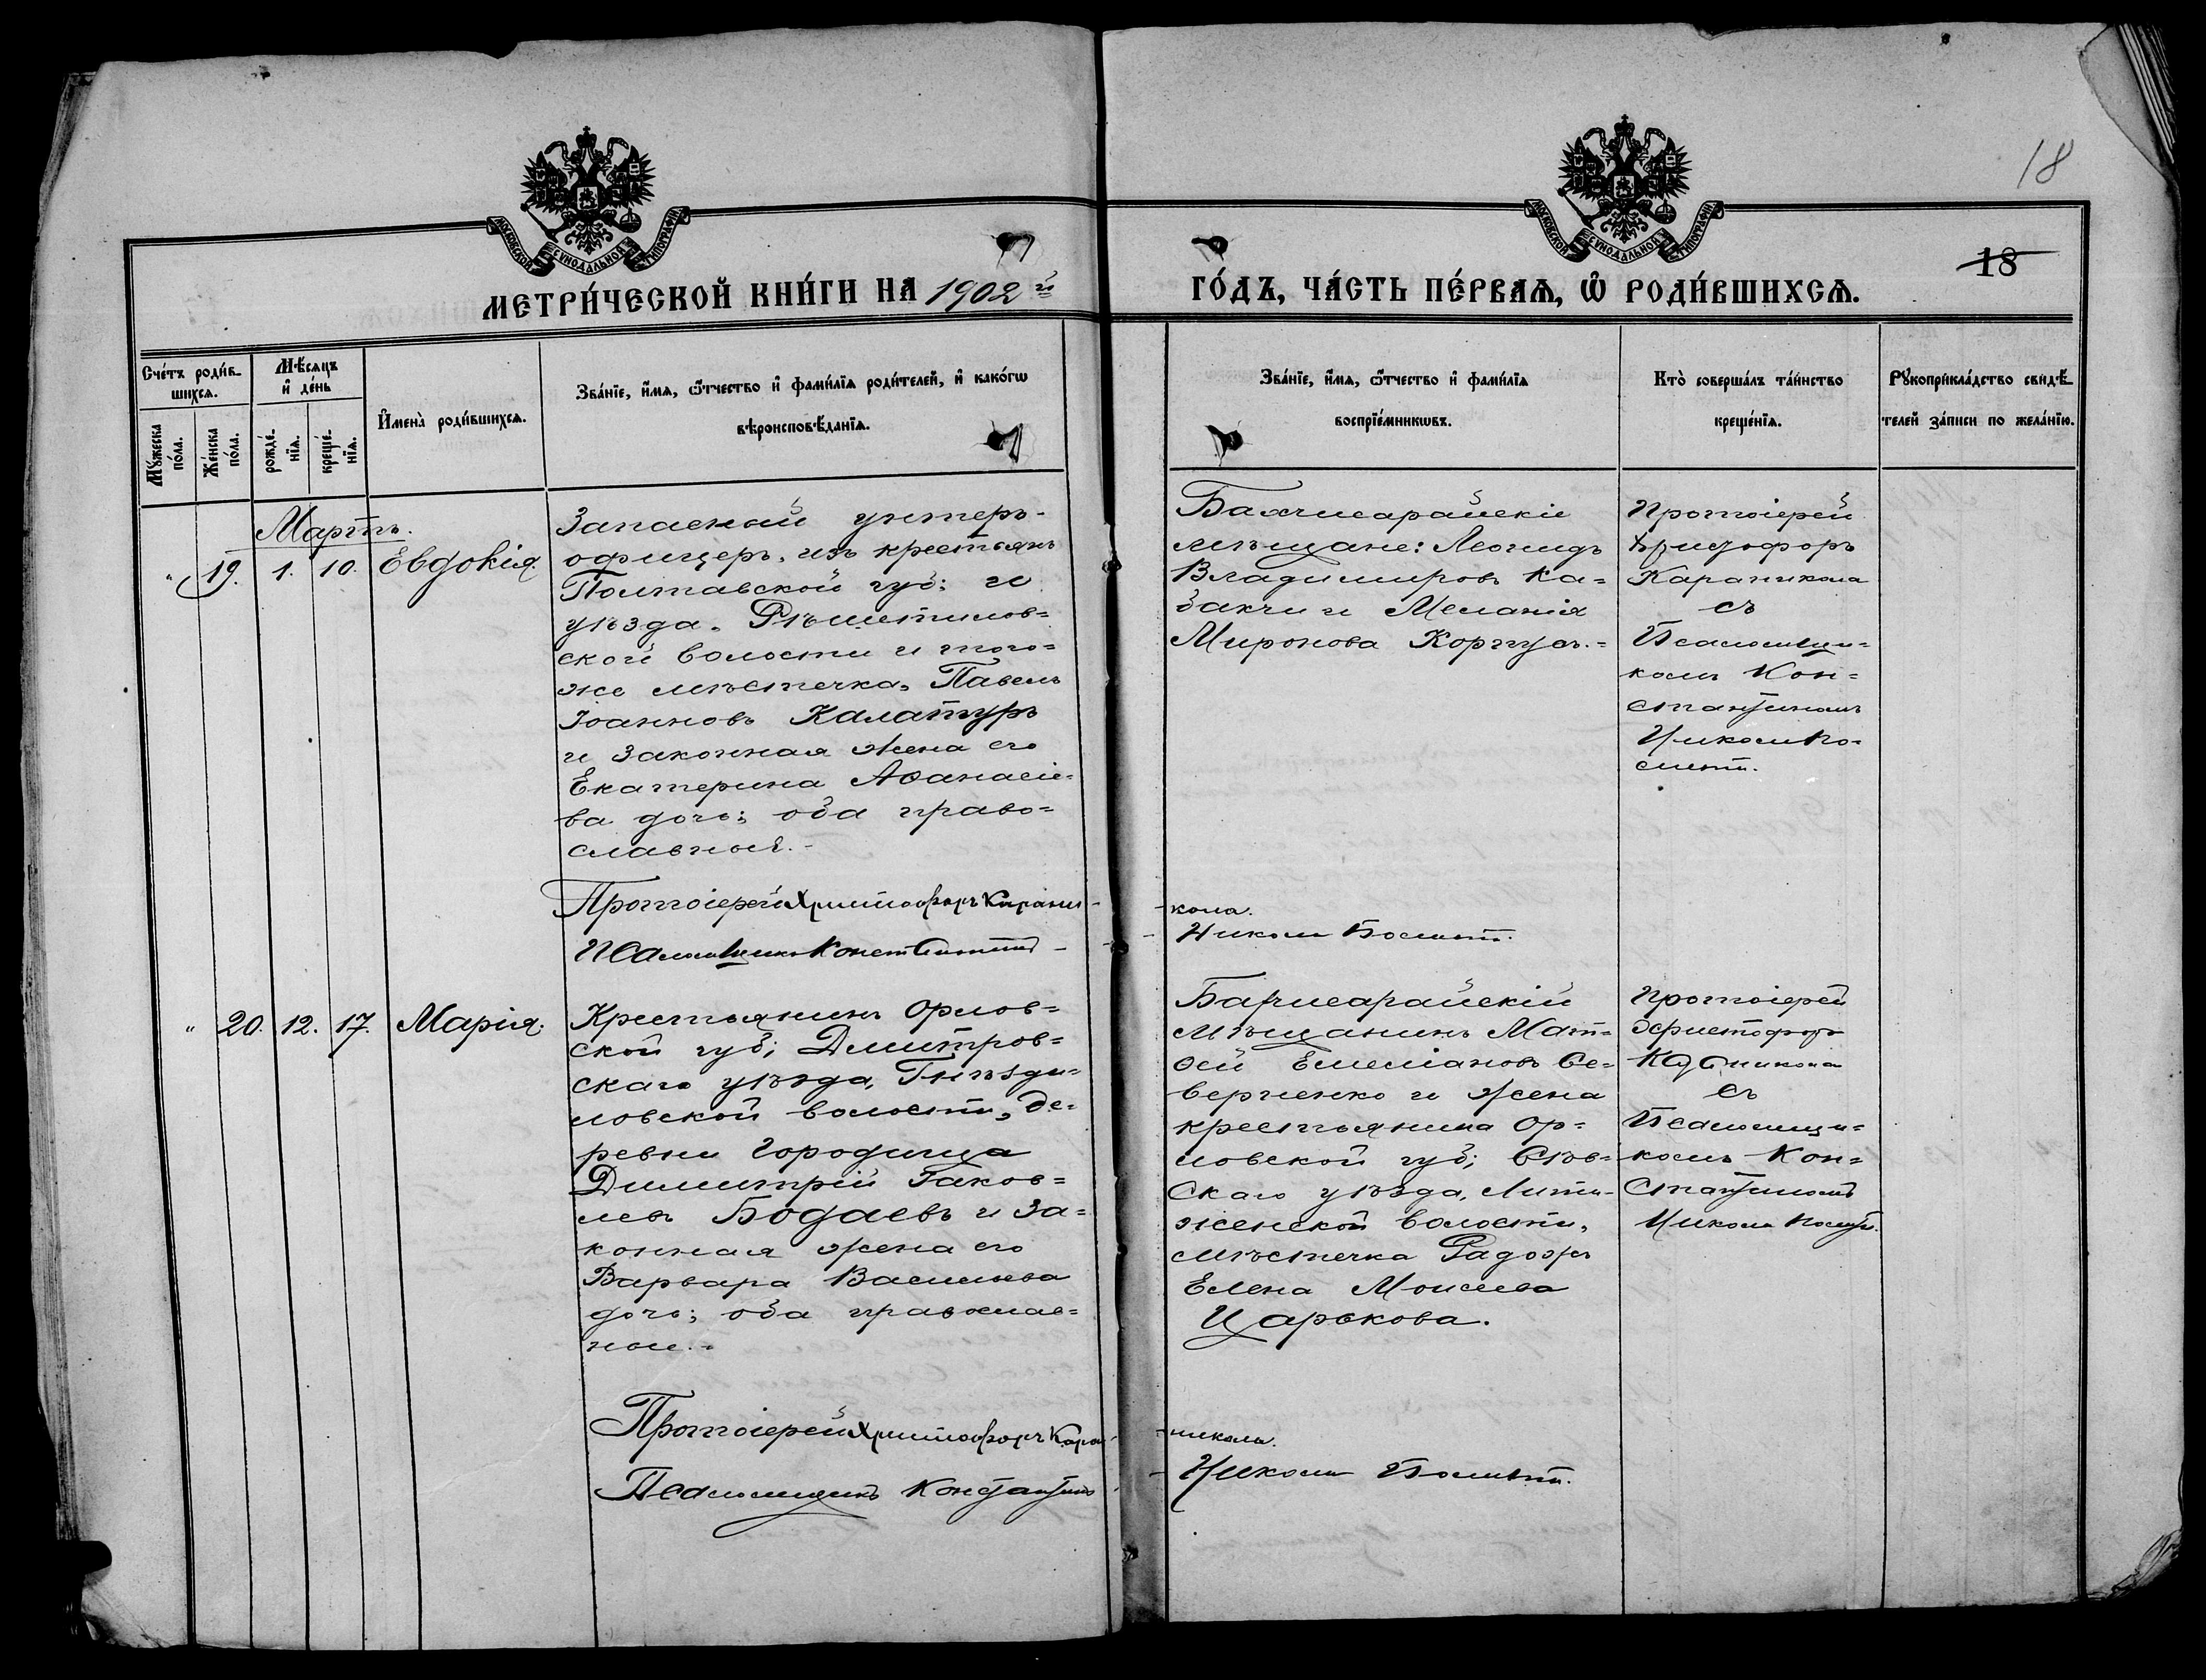 18
18
МОСКОВСКОЙ СѴНОДАЛЬНОЙ ТИПОГРАФІИ
МОСКОВСКОЙ СѴНОДАЛЬНОЙ ТИПОГРАФІИ
МЕТРИ́ЧЕСКОЙ КНИ́ГИ НА 1902 й
ГО́ДЪ, ЧА́СТЬ ПЕ́РВАѦ, Ѡ҆ РОДИ́ВШИХСѦ.
Сче́тъ роди́в-
шихсѧ.
Мꙋ́жеска по́ла.
Же́нска по́ла.
Мѣ́сѧцъ
и҆ де́нь
рожде́-
нїѧ.
креще́-
нїѧ.
И҆мена̀ роди́вшихсѧ.
Зва́нїе, и҆́мѧ, ѻ҆́тчество и҆ фами́лїѧ роди́телей, и҆ како́гѡ
вѣроисповѣ́данїѧ.
Зва́нїе, и҆́мѧ, ѻ҆́тчество и҆ фами́лїѧ
воспрїе́мникѡвъ.
Кто̀ соверша́лъ та́инство
креще́нїѧ.
Рꙋкоприкла́дство свидѣ́-
телей за́писи по жела́нїю.
Мартъ.
" 19. 1. 10. Евдокія.
Запасный унтеръ-
офицеръ, изъ крестьянъ
Полтавской губ: и
уѣзда, Рѣшетилов=
ской волости и того=
же мѣстечка, Павелъ
Іоанновъ Калатуръ
и законная жена его
Екатерина Аѳанасіе=
ва дочь; оба право=
славные.-
Бахчисарайскіе
мѣщане: Леонидъ
Владимировъ Ка=
закчи и Меланія
Миронова Корпусъ.=
Протоіерей
Христофоръ
Караникола
съ
Псаломщи=
комъ Кон=
стантиномъ
Протоіерей Христофоръ Карани-
-кола.
Псаломщикъ Константинъ -
" 20. 12. 17. Марія.
Крестьянинъ Орлов=
ской губ; Дмитров=
скаго уѣзда, Гнѣзди=
ловской волости, де=
ревни Городища
Димитрій Іаков=
левъ Бодаевъ и за=
конная жена его
Варвара Васильева
дочь; оба православ=
ные.=
Бахчисарайскій
мѣщанинъ Мат=
ѳей Емеліановъ Се=
верченко и жена
крестьянина Ор=
ловской губ; Сѣв=
скаго уѣзда, Лити=
женской волости,
мѣстечка Радожъ
Елена Моисеева
Царькова.
Протоіерей
Христофоръ
Караникола
съ
Псаломщи=
комъ Кон=
стантиномъ
Протоіерей Христофоръ Кара-
-никола.
Псаломщикъ Константинъ